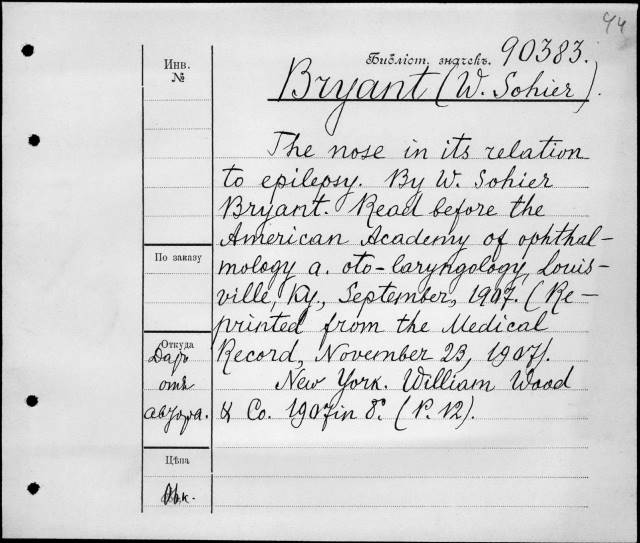 44
Инв.
№
Библіот. значекъ. 90383.
Bryant (W. Sohier).
The nose in its relation
to epilepsy. By W. Sohier
Bryant. Read before the
American Academy of ophthal-
mology a. oto-laryngology, Louis-
ville, Ky., September, 1907. (Re-
printed from the Medical
Record, November 23, 1907).
New York. William Wood
& Co. 1907 in 8°. (P. 12).
По заказу
Откуда
Даръ
отъ
автора.
Цѣна